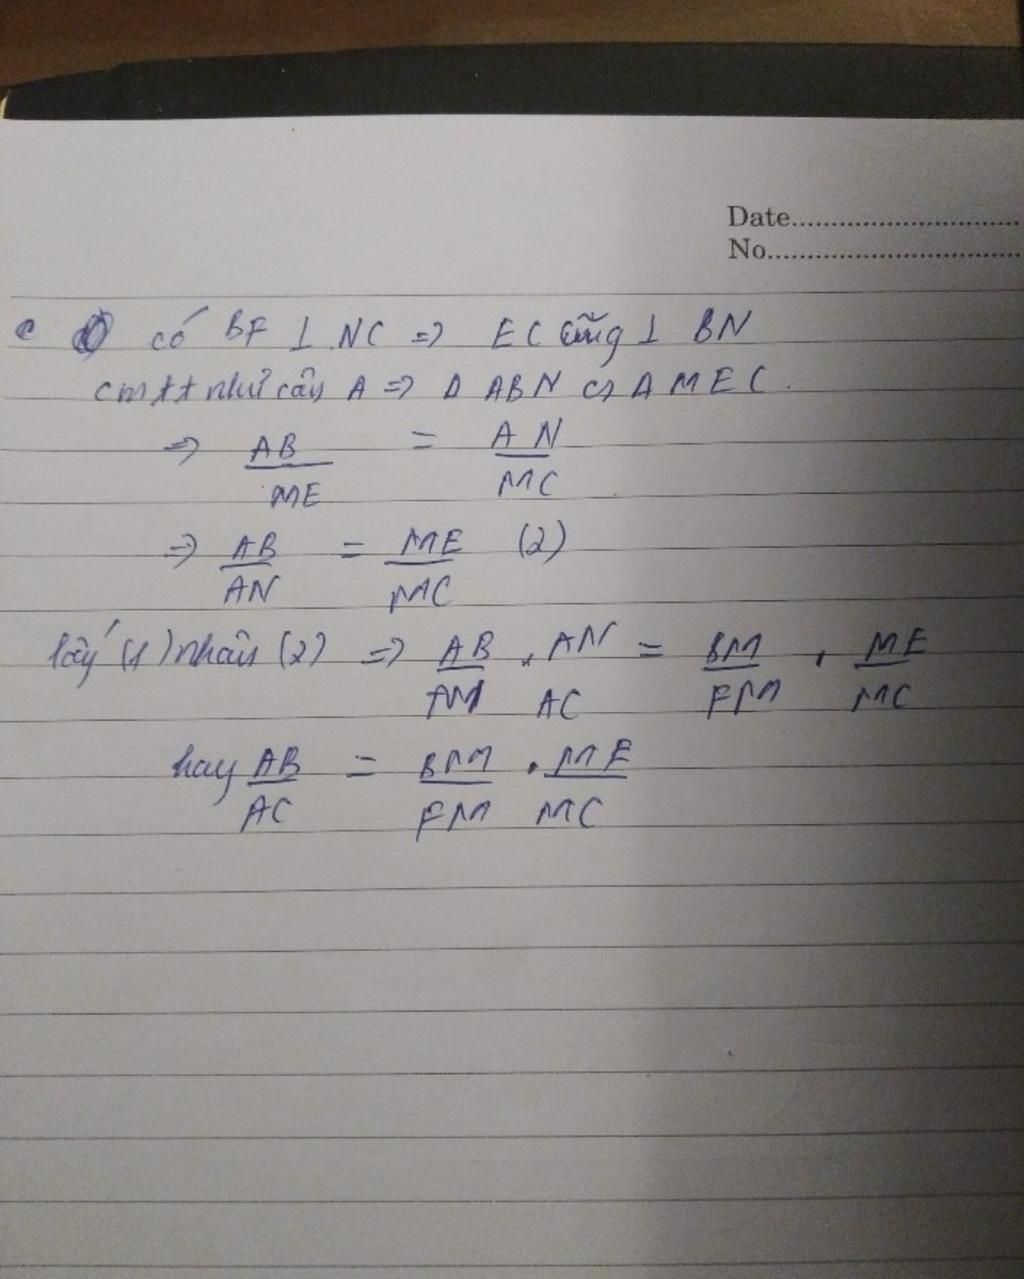 Date..............................
No..................................
c có BF ⊥ NC => EC cũng ⊥ BN
cmtt như câu A => Δ ABN ∽ Δ MEC.
=> AB/ME = AN/MC
=> AB/AN = ME/MC (2)
lấy (1) nhân (2) => AB/AN . AN/AC = BM/FM . ME/MC
hay AB/AC = BM/FM . ME/MC